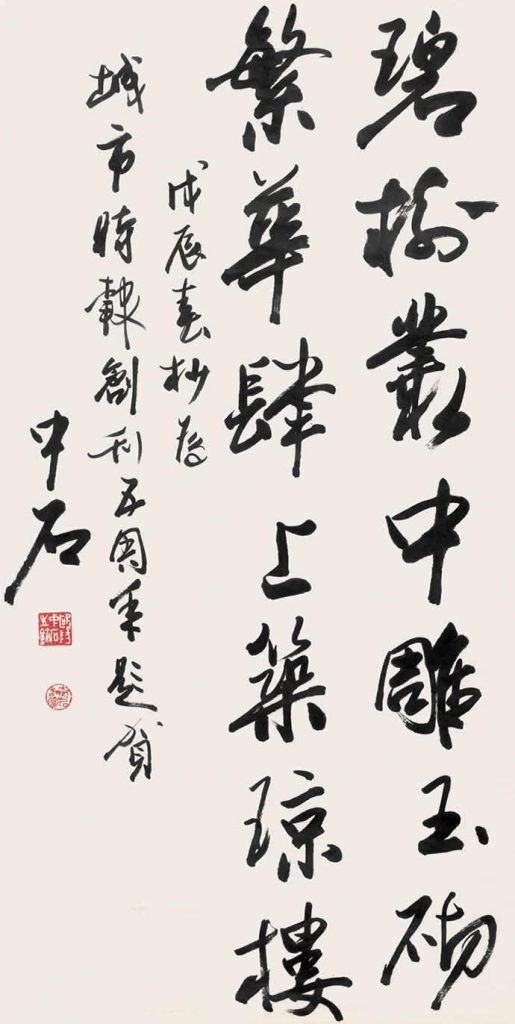 碧樹叢中雕玉砌
繁華肆上築瓊樓
戊辰春抄為
城市時報創刊五周年題賀
中石